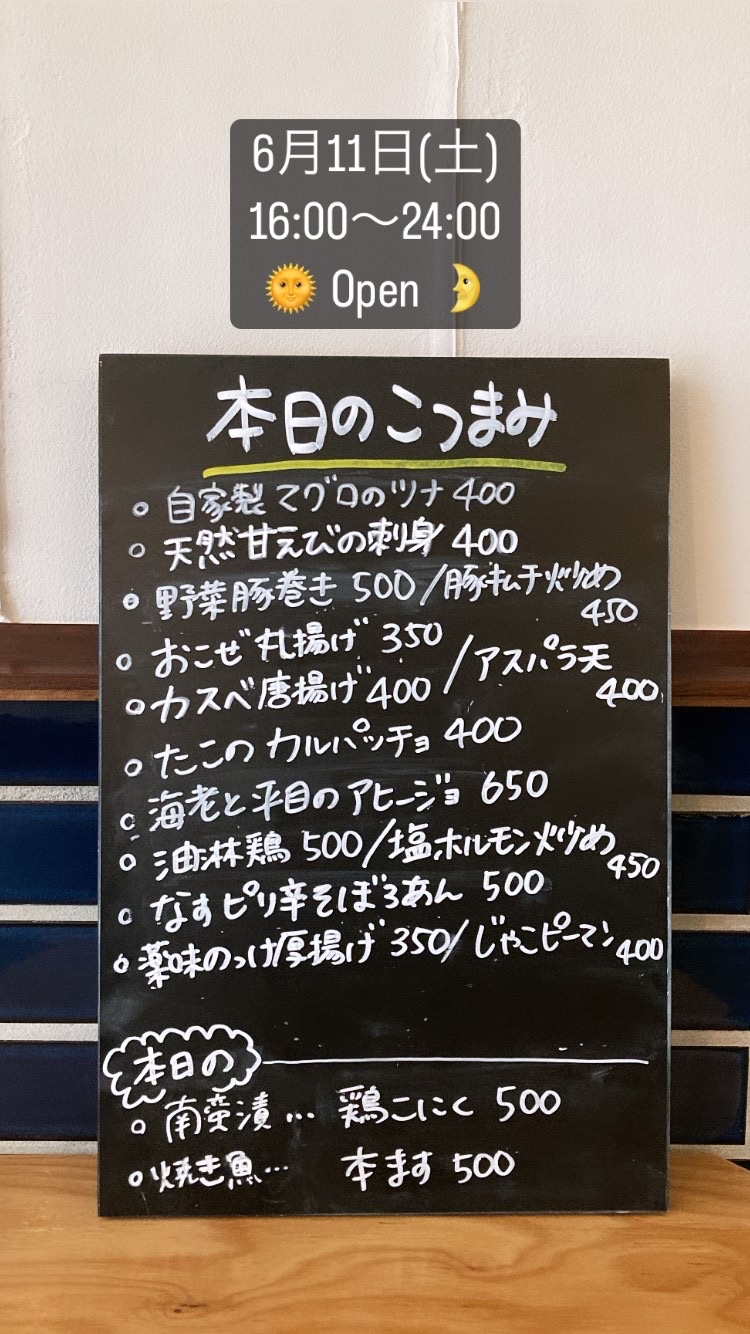 6月11日(土)
16:00〜24:00
🌞 Open 🌛
本日のこつまみ
○ 自家製 マグロのツナ 400
○ 天然甘えびの刺身 400
○ 野菜豚巻き 500/豚キムチ炒め 450
○ おこぜ丸揚げ 350/アスパラ天 400
○ カスベ唐揚げ 400
○ たこのカルパッチョ 400
○ 海老と平目のアヒージョ 650
○ 油淋鶏 500/塩ホルモン炒め 450
○ なすピリ辛そぼろあん 500
○ 薬味のっけ厚揚げ 350/じゃこピーマン 400
本日の
○ 南蛮漬… 鶏こにく 500
○ 焼き魚… 本ます 500